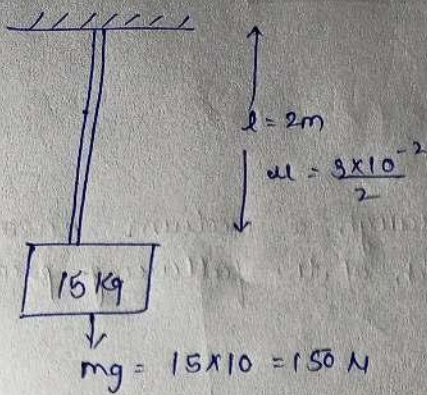 l = 2m
μ = 3×10⁻²
2
15 Kg
mg = 15×10 = 150 N